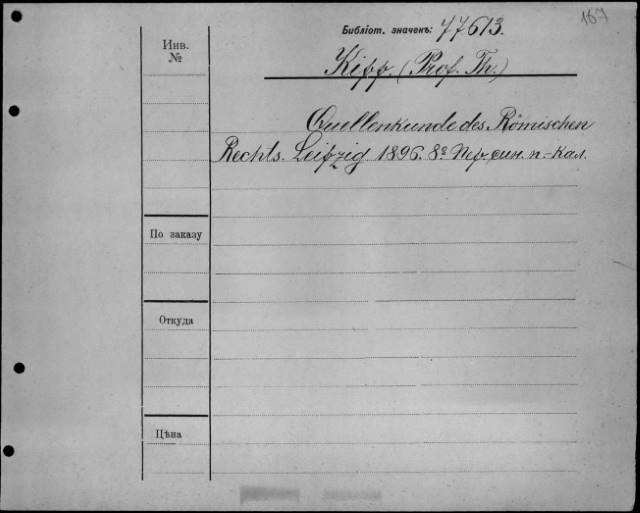 167
Библіот. значекъ: 77613.
Инв.
№
Kipp. (Prof. Th.)
Quellenkunde des Römischen
Rechts. Leipzig 1896. 8º Пер. син. п.-кал.
По заказу
Откуда
Цѣна